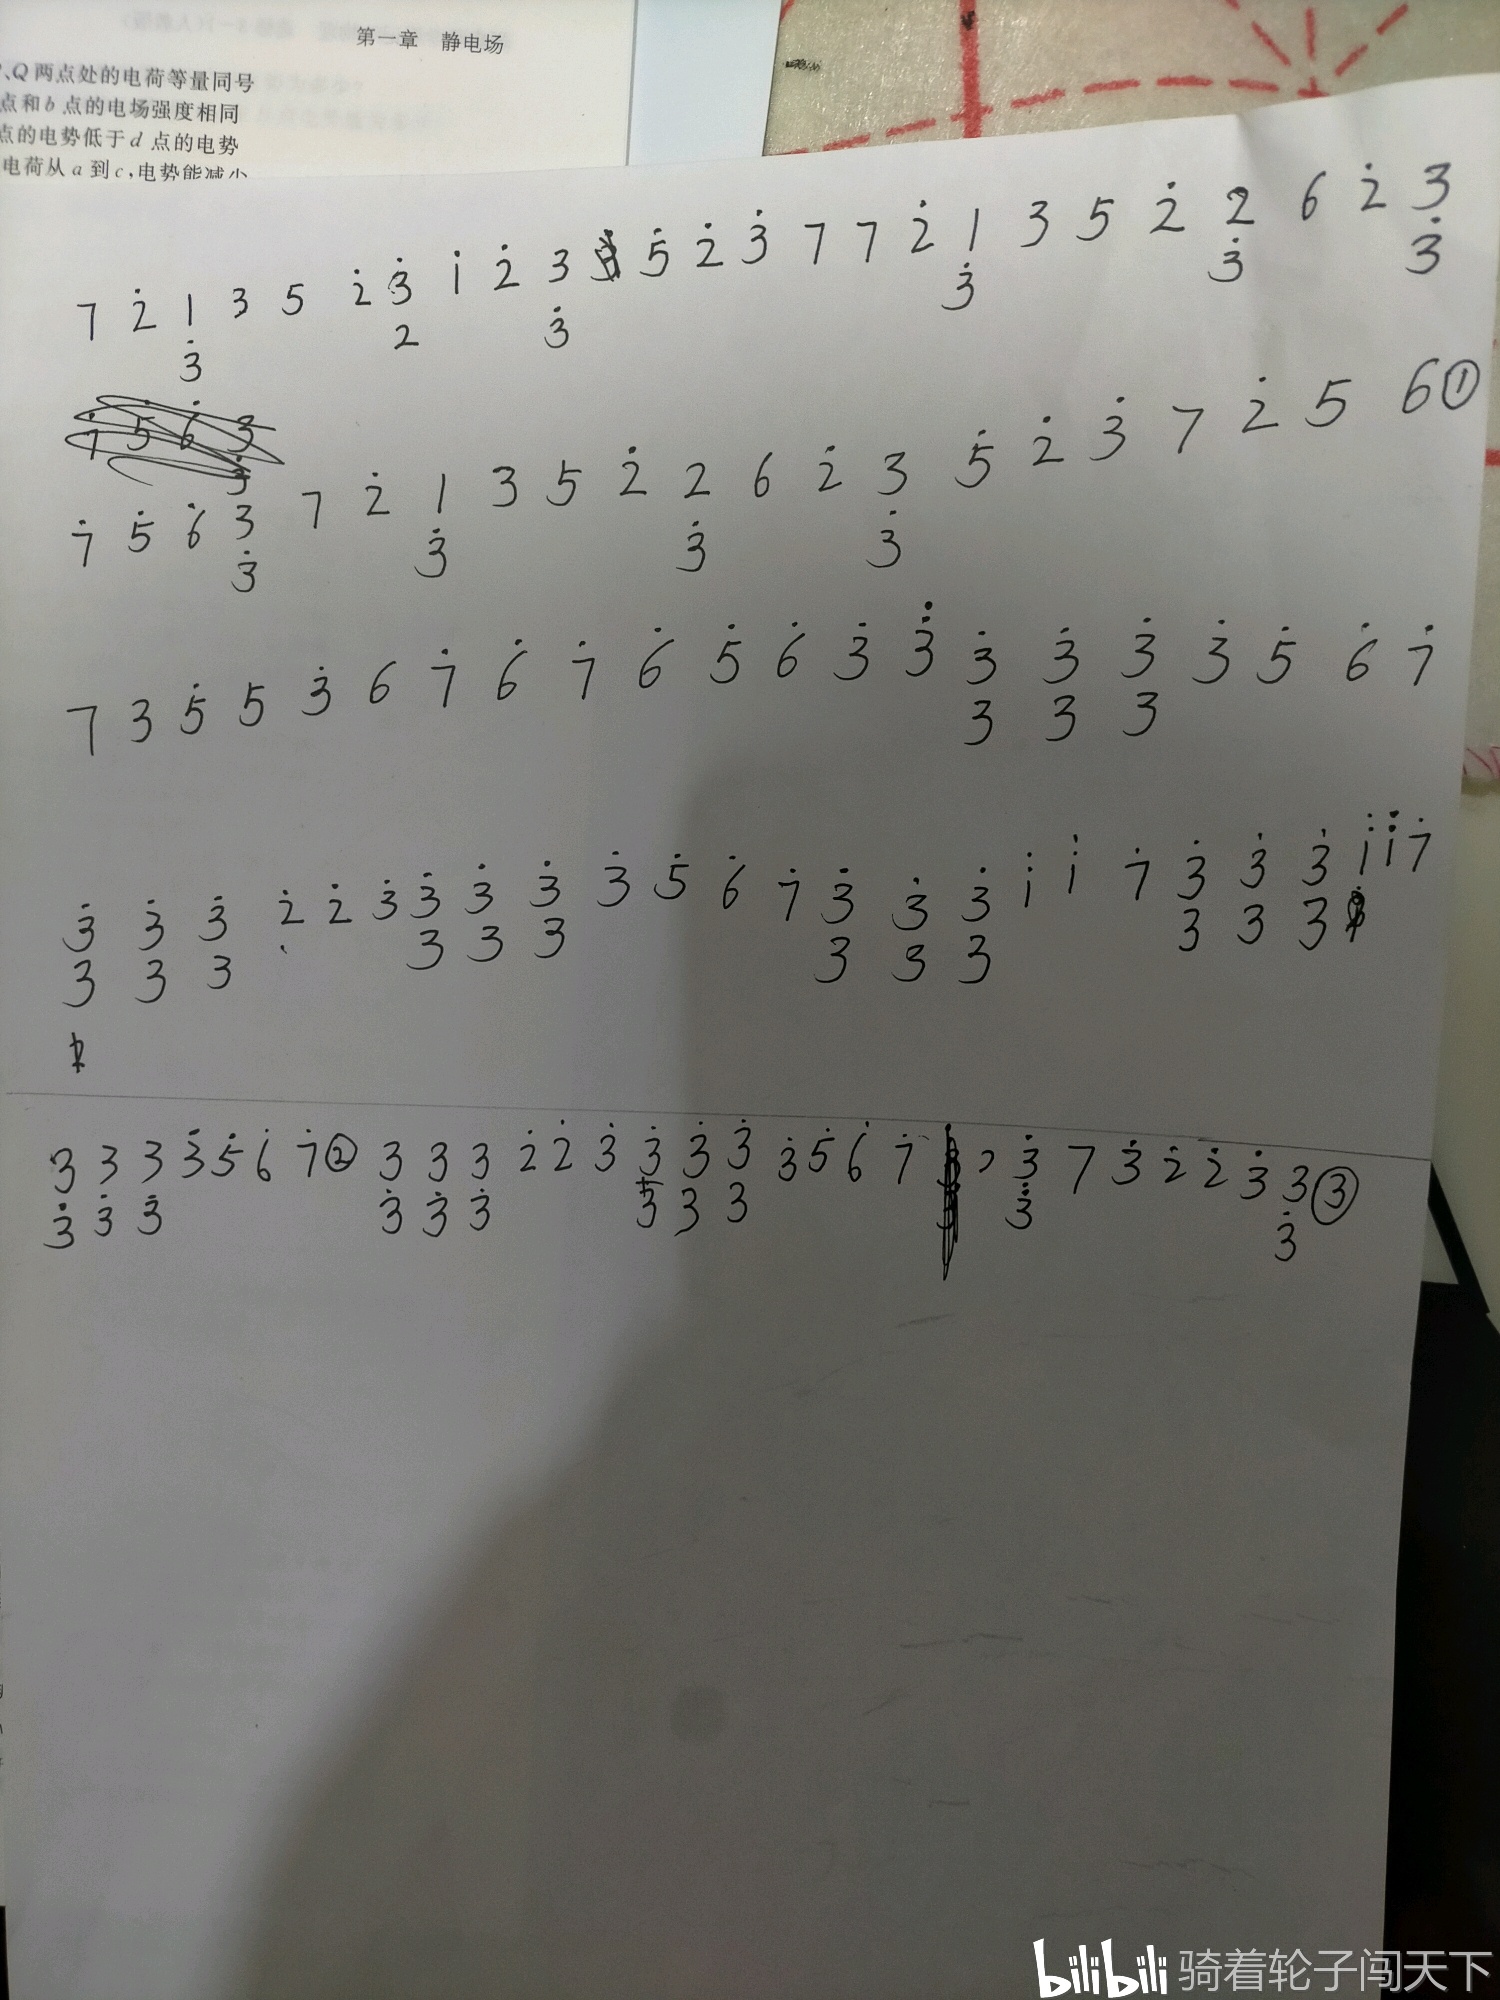 第一章 静电场
、Q两点处的电荷等量同号
点和b点的电场强度相同
点的电势低于d点的电势
电荷从a到c,电势能减少
7 2̇ 1 3 5 2̇ 3̇ 1̇ 2̇ 3 5̇ 2̇ 3̇ 7 7 2̇ 1 3 5 2̇ 2 6 2̇ 3
3̇ 2 3̇ 3̇ 3̇ 3̇
7 2̇ 5 6①
7̇ 5̇ 6̇ 3 7 2̇ 1 3 5 2̇ 2 6 2̇ 3 5̇ 2̇ 3̇
3̇ 3̇ 3̇ 3̇
7 3 5̇ 5 3̇ 6 7̇ 6̇ 7̇ 6̇ 5̇ 6̇ 3̇ 3̇ 3̇ 3̇ 3̇ 3̇ 5̇ 6̇ 7̇
3 3 3
3̇ 3̇ 3̇ 2̇ 2̇ 3̇ 3̇ 3̇ 3̇ 3̇ 5̇ 6̇ 7̇ 3̇ 3̇ 3̇ 1̇ 1̇ 7̇ 3̇ 3̇ 3̇ 1̇ 1̇ 7̇
3 3 3 3 3 3 3 3 3 3 3 3
3 3 3 3̇ 5̇ 6̇ 7̇② 3 3 3 2̇ 2̇ 3̇ 3̇ 3̇ 3̇ 3̇ 5̇ 6̇ 7̇ 3̇ 7 3̇ 2̇ 2̇ 3̇ 3③
3̇ 3̇ 3̇ 3̇ 3̇ 3̇ 3 3 3 3̇ 3̇
bilibili 骑着轮子闯天下